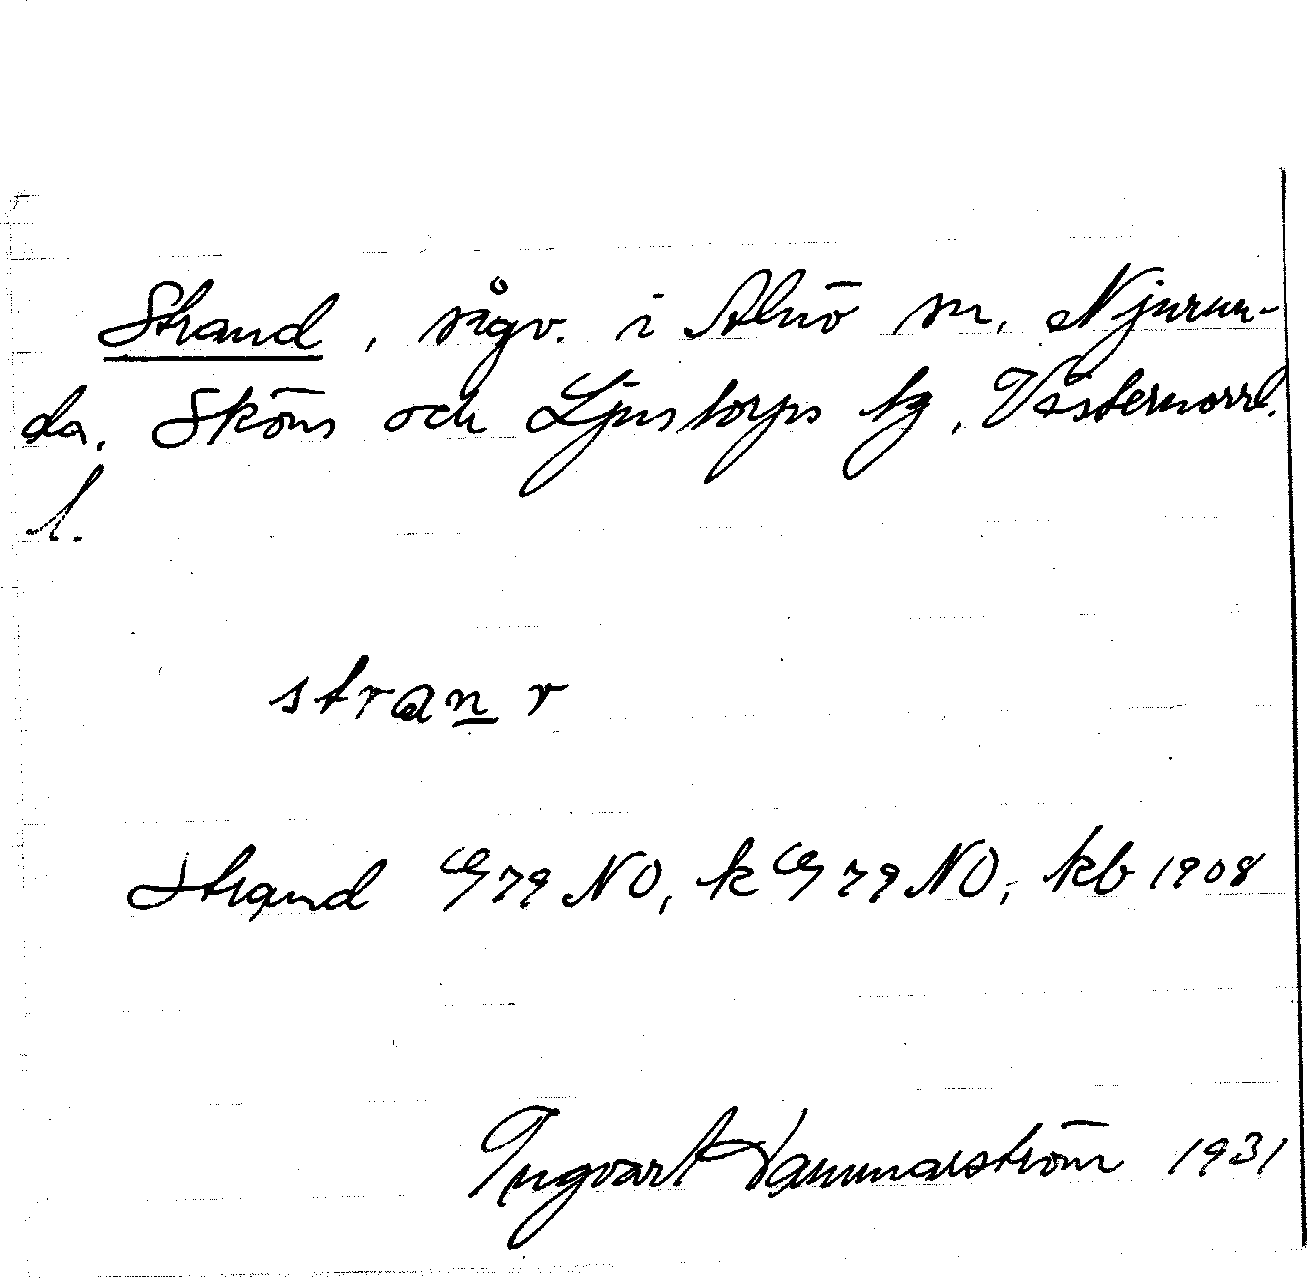 Strand, sågv. i Alnö sn, Njurun-
da, Sköns och Ljustorps tg, Västernorrl.
l.
stran r
Strand G79 NO, k G79 NO, kb 1908
Ingvart Hammarström 1931